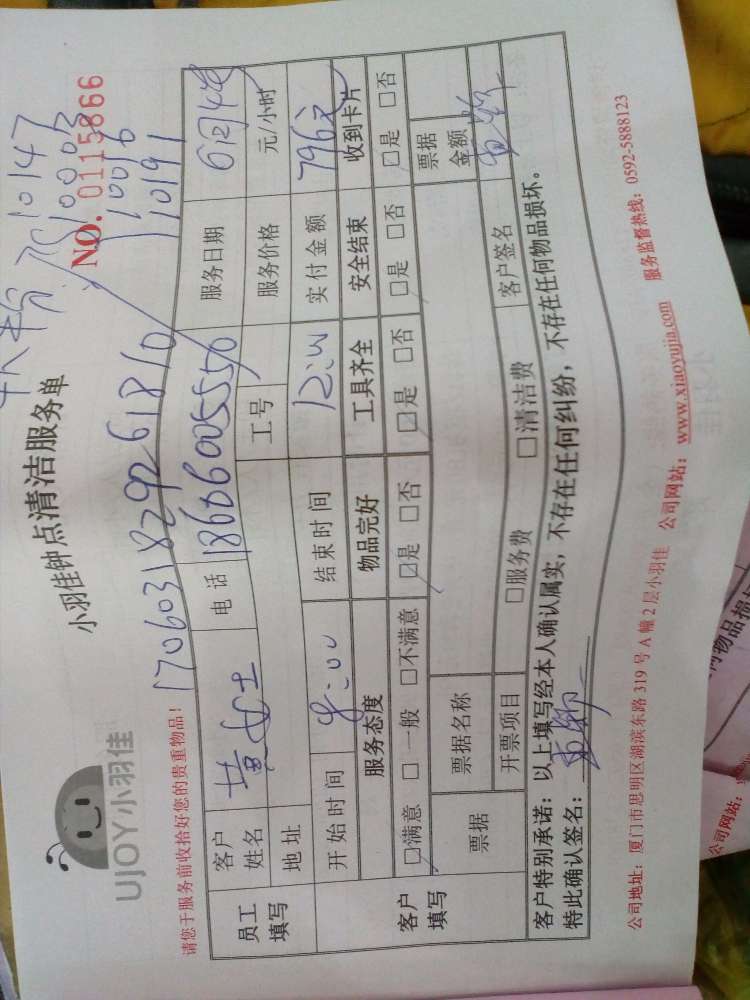 10147
10003
10016
10191
UJOY小羽佳
小羽佳钟点清洁服务单
NO. 0115866
请您于服务前收拾好您的贵重物品!
1706031829261810
员工填写
客户姓名 黄女士 电话 18606005550 服务日期 6月4号
地址 工号 服务价格 元/小时
客户填写
开始时间 8:00 结束时间 12:00 实付金额 796元
服务态度 物品完好 工具齐全 安全结束 收到卡片
☑满意 □一般 □不满意 ☑是 □否 ☑是 □否 ☑是 □否 ☑是 □否
票据 票据名称 票据金额
开票项目 □服务费 □清洁费 客户签名
客户特别承诺:以上填写经本人确认属实,不存在任何纠纷,不存在任何物品损坏。
特此确认签名:
公司地址:厦门市思明区湖滨东路 319 号 A 幢 2 层小羽佳 公司网站:www.xiaoyujia.com 服务监督热线:0592-5888123
公司网站:
何物品损